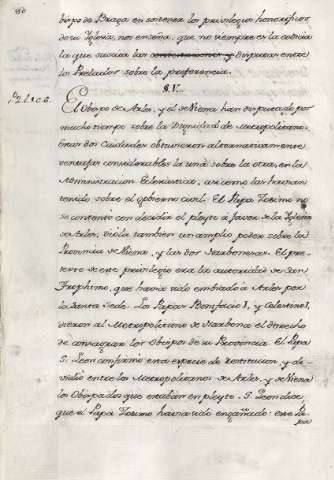 60
bispo de Braga en sostener los privilegios honorificos
de su Iglesia, nos enseña, que no siempre es la codicia
la que suscita las contestaciones y disputas entre
los Prelados sobre la preferencia.
S. V.
El Obispo de Arles, y el de Viena han disputado por
mucho tiempo sobre la Dignidad de Metropolitano.
Estas dos Ciudades obtuvieron alternativamente
ventajas considerables la una sobre la otra, en la
Administracion Eclesiastica, asi como las havian
tenido sobre el gobierno civil. El Papa Zosimo no
se contentó con decidir el pleyto a favor de la Iglesia
de Arles, diola tambien un amplio poder sobre la
Provincia de Viena, y las dos Narbonesas. El pre-
texto de este privilegio era la autoridad de San
Trophimo, que havia sido embiado á Arles por
la Santa Sede. Los Papas Bonifacio I, y Celestino I,
dieron al Metropolitano de Narbona el derecho
de consagrar los Obispos de su Provincia. El Papa
S. Leon confirmó esta especie de restitucion, y di-
vidió entre los Metropolitanos de Arles, y de Viena
los Obispados que estaban en pleyto. S. Leon dice,
que el Papa Zosimo havia sido engañado: este Pa-
pa